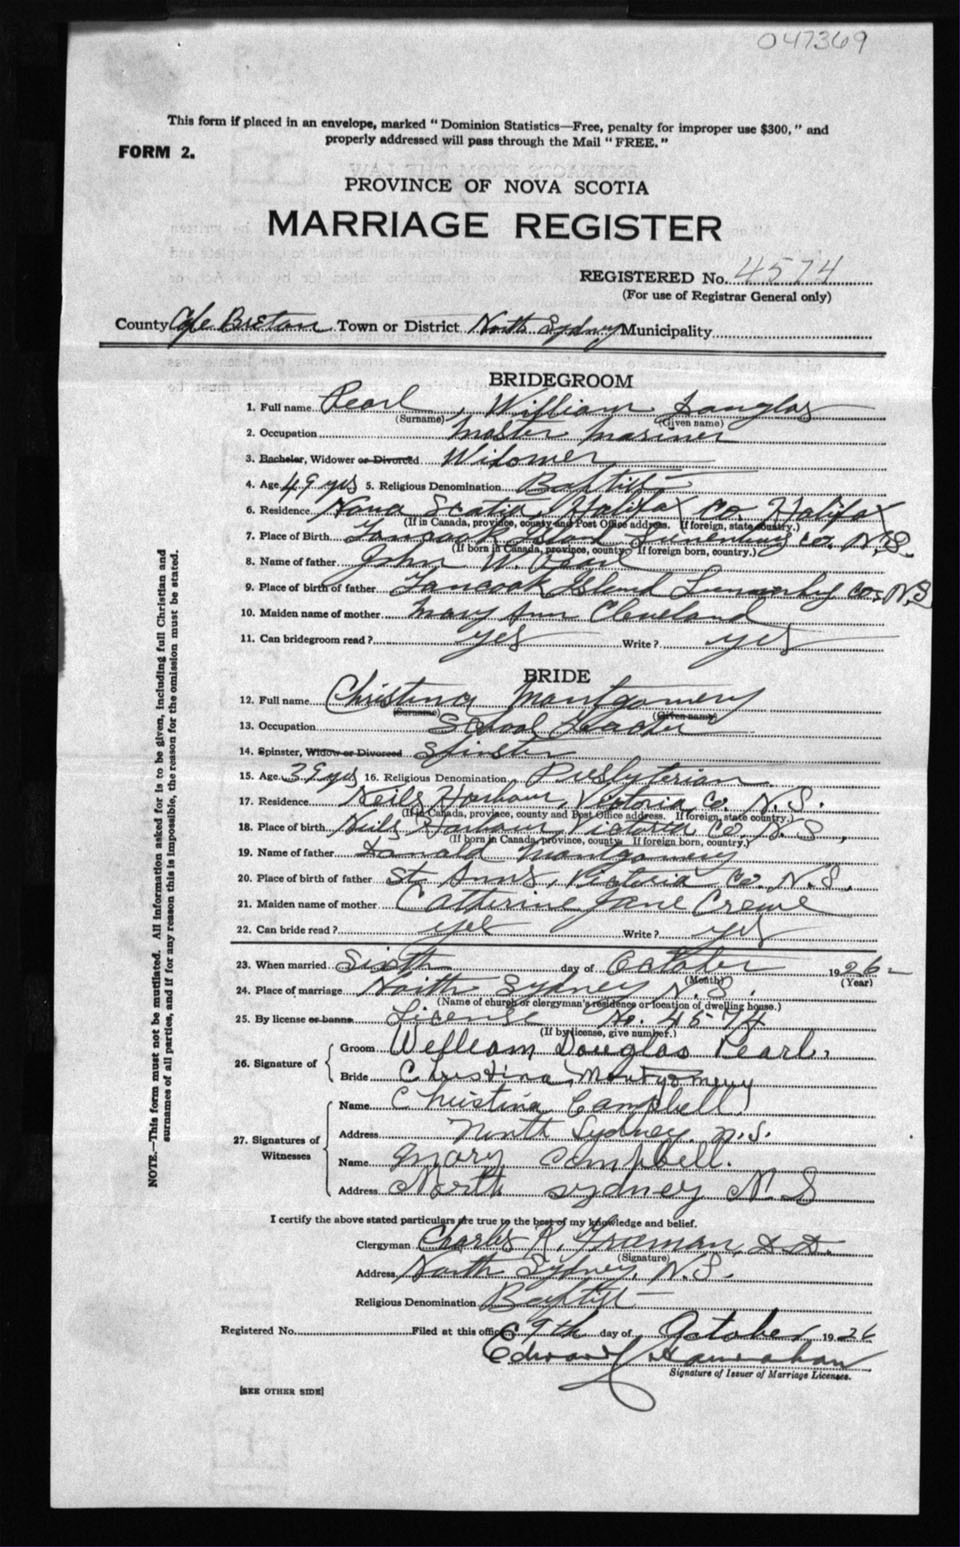 047369
This form if placed in an envelope, marked " Dominion Statistics—Free, penalty for improper use $300, " and
properly addressed will pass through the Mail " FREE. "
FORM 2.
PROVINCE OF NOVA SCOTIA
MARRIAGE REGISTER
REGISTERED No. 4574
(For use of Registrar General only)
County Cape Breton Town or District North Sydney Municipality
BRIDEGROOM
1. Full name Pearl, William Douglas
(Surname) (Given name)
2. Occupation Master Mariner
3. Bachelor, Widower or Divorced Widower
4. Age 49 yrs 5. Religious Denomination Baptist
6. Residence Nova Scotia, Halifax Co. Halifax
(If in Canada, province, county and Post Office address. If foreign, state country.)
7. Place of Birth Tancook Island Lunenburg Co. N.S.
(If born in Canada, province, county. If foreign born, country.)
8. Name of father John W. Pearl
9. Place of birth of father Tancook Island Lunenburg Co. N.S.
10. Maiden name of mother Mary Ann Cleveland
11. Can bridegroom read? yes Write? yes
BRIDE
12. Full name Christina Montgomery
(Surname) (Given name)
13. Occupation School Teacher
14. Spinster, Widow or Divorced Spinster
15. Age 39 yrs 16. Religious Denomination Presbyterian
17. Residence Neils Harbour, Victoria Co. N.S.
(If in Canada, province, county and Post Office address. If foreign, state country.)
18. Place of birth Neils Harbour, Victoria Co. N.S.,
(If born in Canada, province, county. If foreign born, country.)
19. Name of father Donald Montgomery
20. Place of birth of father St. Anns, Victoria Co. N.S.
21. Maiden name of mother Catherine Jane Crewe
22. Can bride read? yes Write? yes
23. When married Sixth day of October 1926
(Month) (Year)
24. Place of marriage North Sydney N.S.
(Name of church or clergyman's residence or location of dwelling house.)
25. By license or banns License No. 4574
(If by license, give number.)
26. Signature of Groom William Douglas Pearl.
Bride Christina Montgomery
27. Signatures of Witnesses Name Christina Campbell
Address North Sydney N.S.
Name Mary Campbell.
Address North Sydney N.S
I certify the above stated particulars are true to the best of my knowledge and belief.
Clergyman Charles R. Freeman, D.D.
(Signature)
Address North Sydney, N.S.
Religious Denomination Baptist
Registered No. Filed at this office 9th day of October 1926
Edward Hanrahan
Signature of Issuer of Marriage Licenses.
[SEE OTHER SIDE]
NOTE.—This form must not be mutilated. All information asked for is to be given, including full Christian and
surnames of all parties, and if for any reason this is impossible, the reason for the omission must be stated.